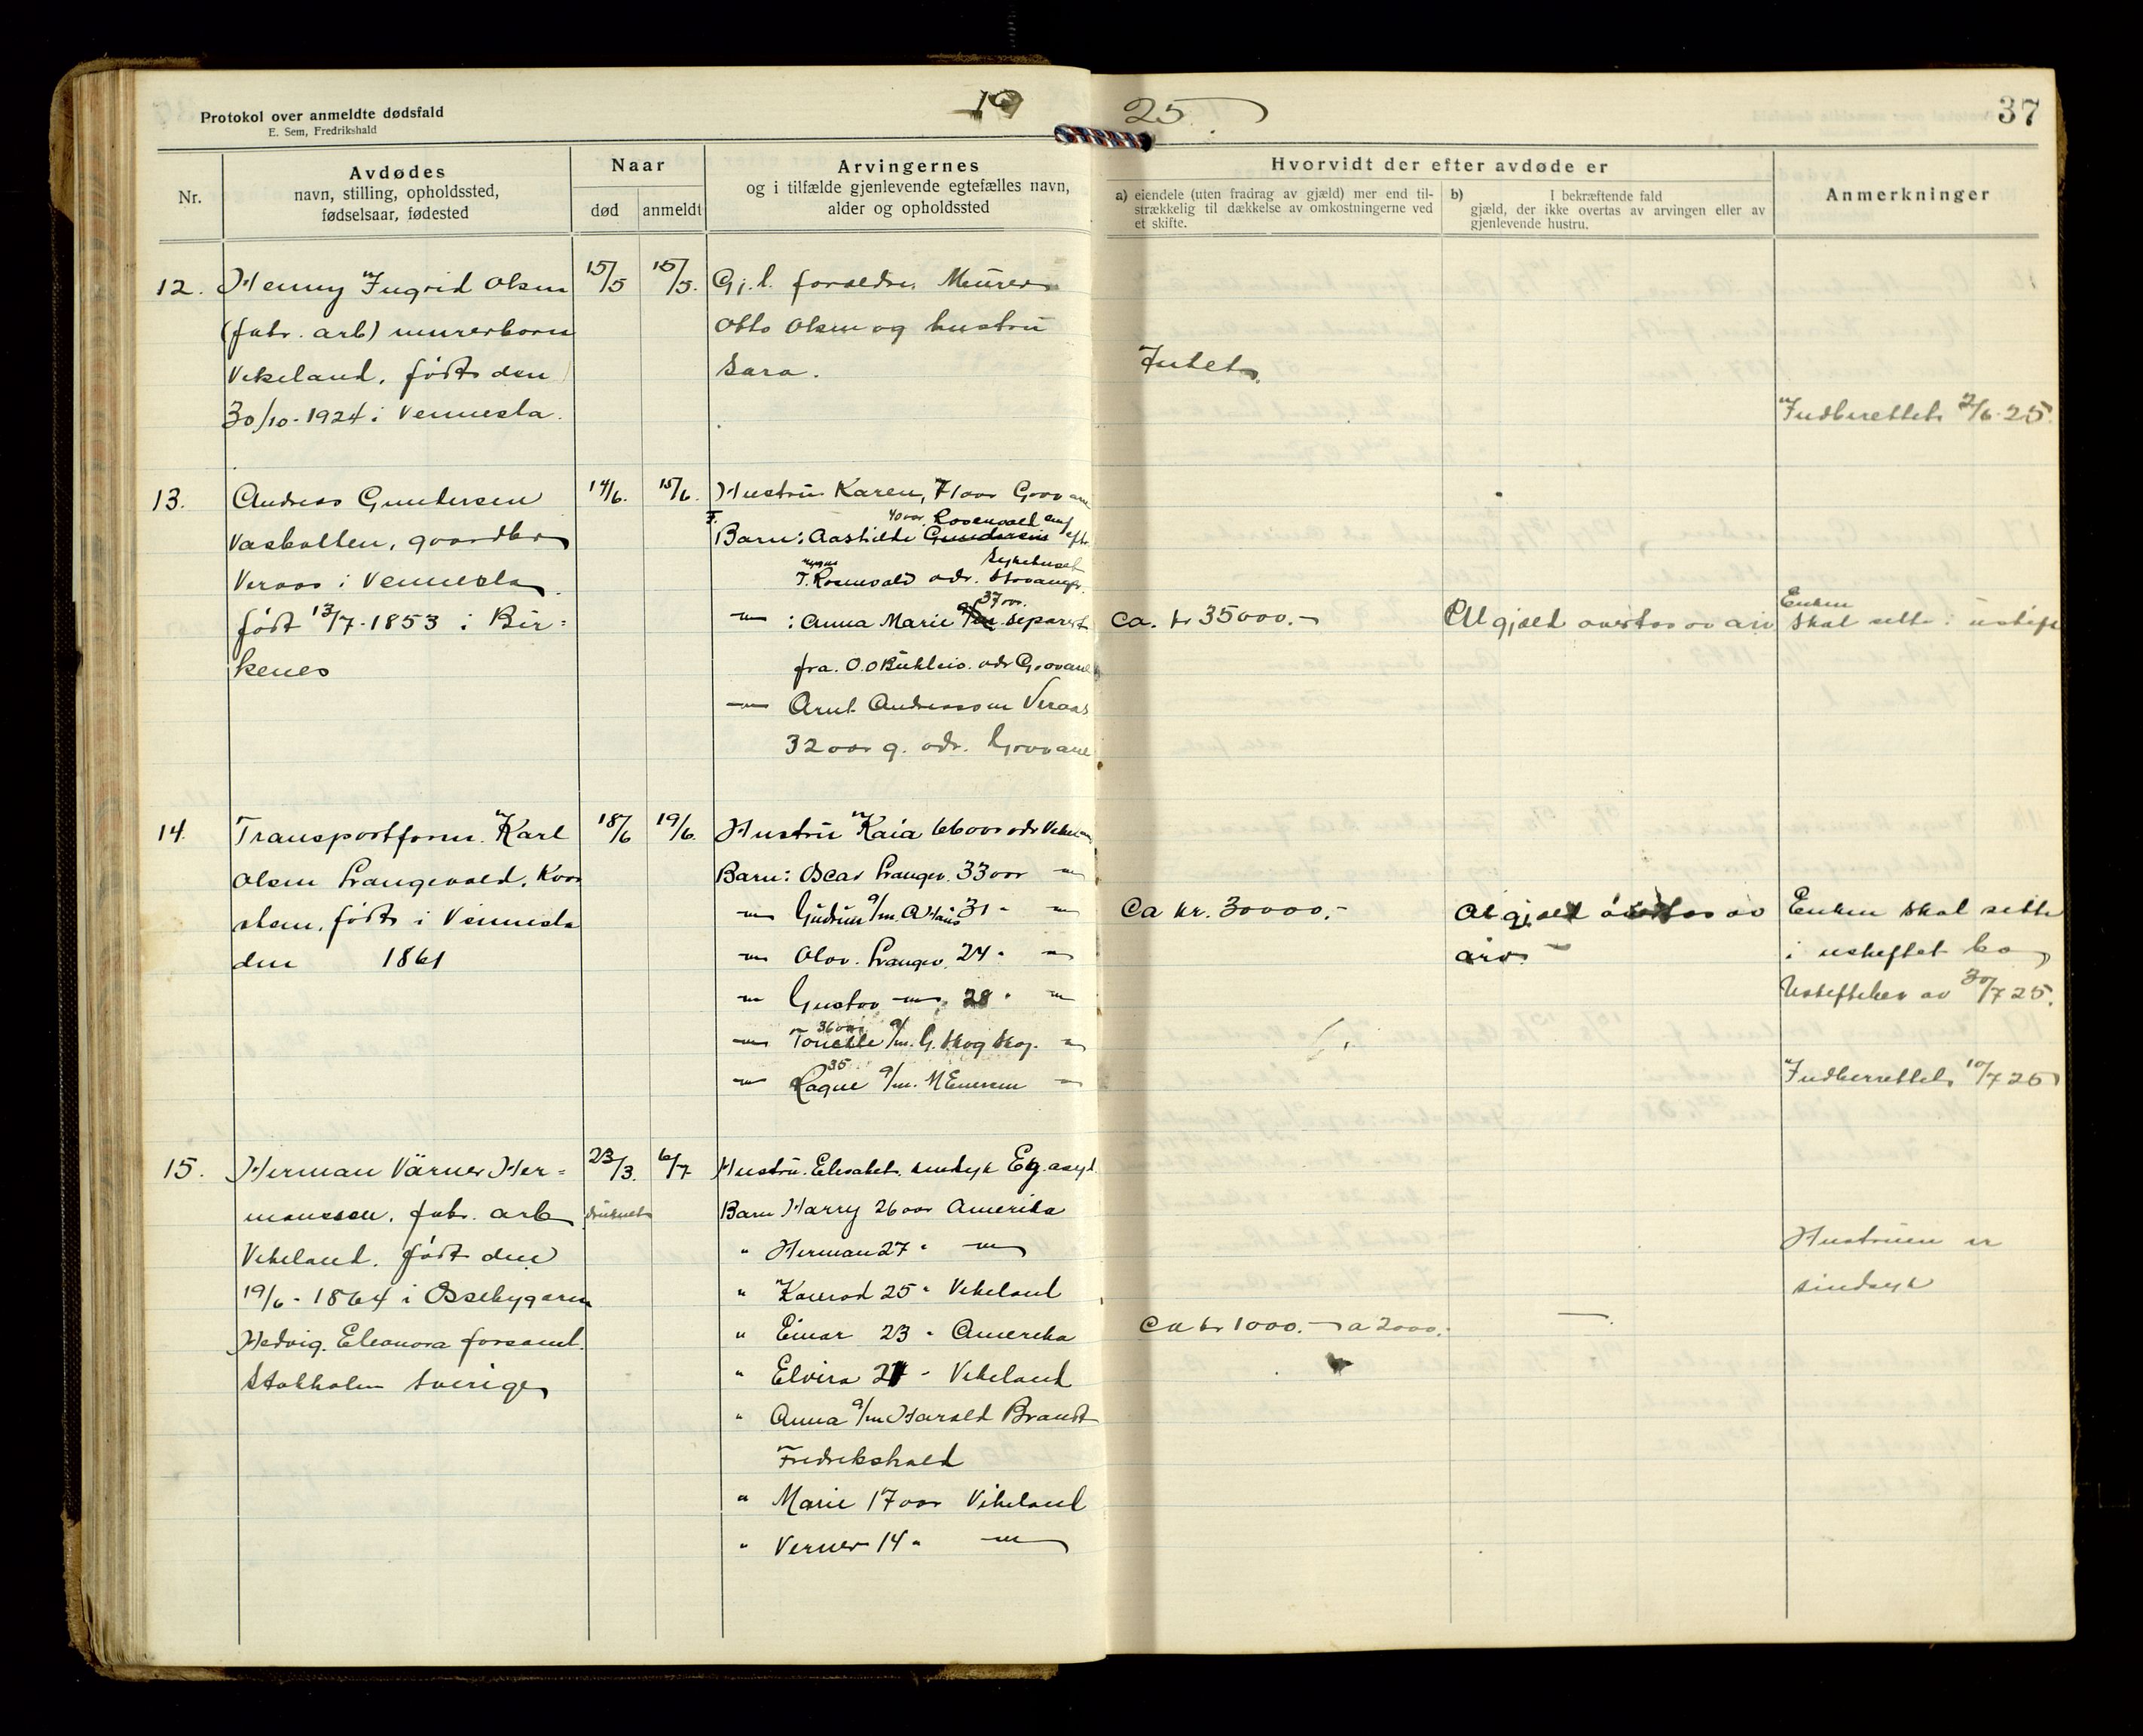 Protokol over anmeldte dødsfald
E. Sem, Fredrikshald
19 25
37
Nr.
Avdødes
navn, stilling, opholdssted,
fødselsaar, fødested
Naar
død anmeldt
Arvingernes
og i tilfælde gjenlevende egtefælles navn,
alder og opholdssted
Hvorvidt der efter avdøde er
a) eiendele (uten fradrag av gjæld) mer end til-
strækkelig til dækkelse av omkostningerne ved
et skifte.
b) I bekræftende fald
gjæld, der ikke overtas av arvingen eller av
gjenlevende hustru.
Anmerkninger
12. Henny Ingrid Olsen
(fabr. arb) murerbarn
Vikeland, født den
30/10-1924 i Vennesla.
15/5 15/5.
Gj. l. forældre Murer
Otto Olsen og hustru
Sara.
Intet
Indberettet 2/6-25.
13. Andreas Gundersen
Vaskollen, gaardbr
Veraas i Vennesla
født 13/7-1853 i Bir=
kenes
14/6. 15/6.
Hustru Karen, 71 aar Grovane
Barn: Aashilde
40 aar. Rosenvold
T. Rosenvold adr. Stavanger
Sykehuset
37 aar.
" : Anna Marie separert
fra O. O. adr Grovane
" Arnt Andreassen Veraas
32 aar g. adr. Grovane
Ca. kr 35000.-
Al gjæld overtas av arv
Enken
skal sitte i uskift
14. Transportform. Karl
Olsen Langevold, Kvar
sten, født i Vennesla
den 1861
18/6 19/6.
Hustru Kaia 66 aar adr Vikeland
Barn: Oscar Langev. 33 aar "
" Gudrun g/m. A Haus 31 " "
" Olav. Langev. 24 " "
" Gustav " 28 " "
" 36 aar g/m. G. Skog Skog. "
" 35 Ragne g/m. M Enersen "
Ca kr. 30000.-
Al gjæld overtas av
arv.
Enken skal sitte
i uskiftet bo
Uskiftebev av 30/7 25.
Indberettet 10/7 25
15. Herman Värner Her=
mansson, fabr. arb
Vikeland, født den
19/6-1864 i
Hedvig Eleonora forsaml.
Stokholm Sverige
23/3. 6/7
druknet
Hustru Elisabet sindsyk Eg. asyl
Barn Harry 26 aar Amerika
" Herman 27 " "
" Konrad 25 " Vikeland
" Einar 23 " Amerika
" Elvira 21 " Vikeland
" Anna g/m Harald Brandt
Fredrikshald
" Marie 17 aar Vikeland
" Verner 14 " "
Ca kr 1000.- a 2000.-
—
Hustruen er
sindsyk